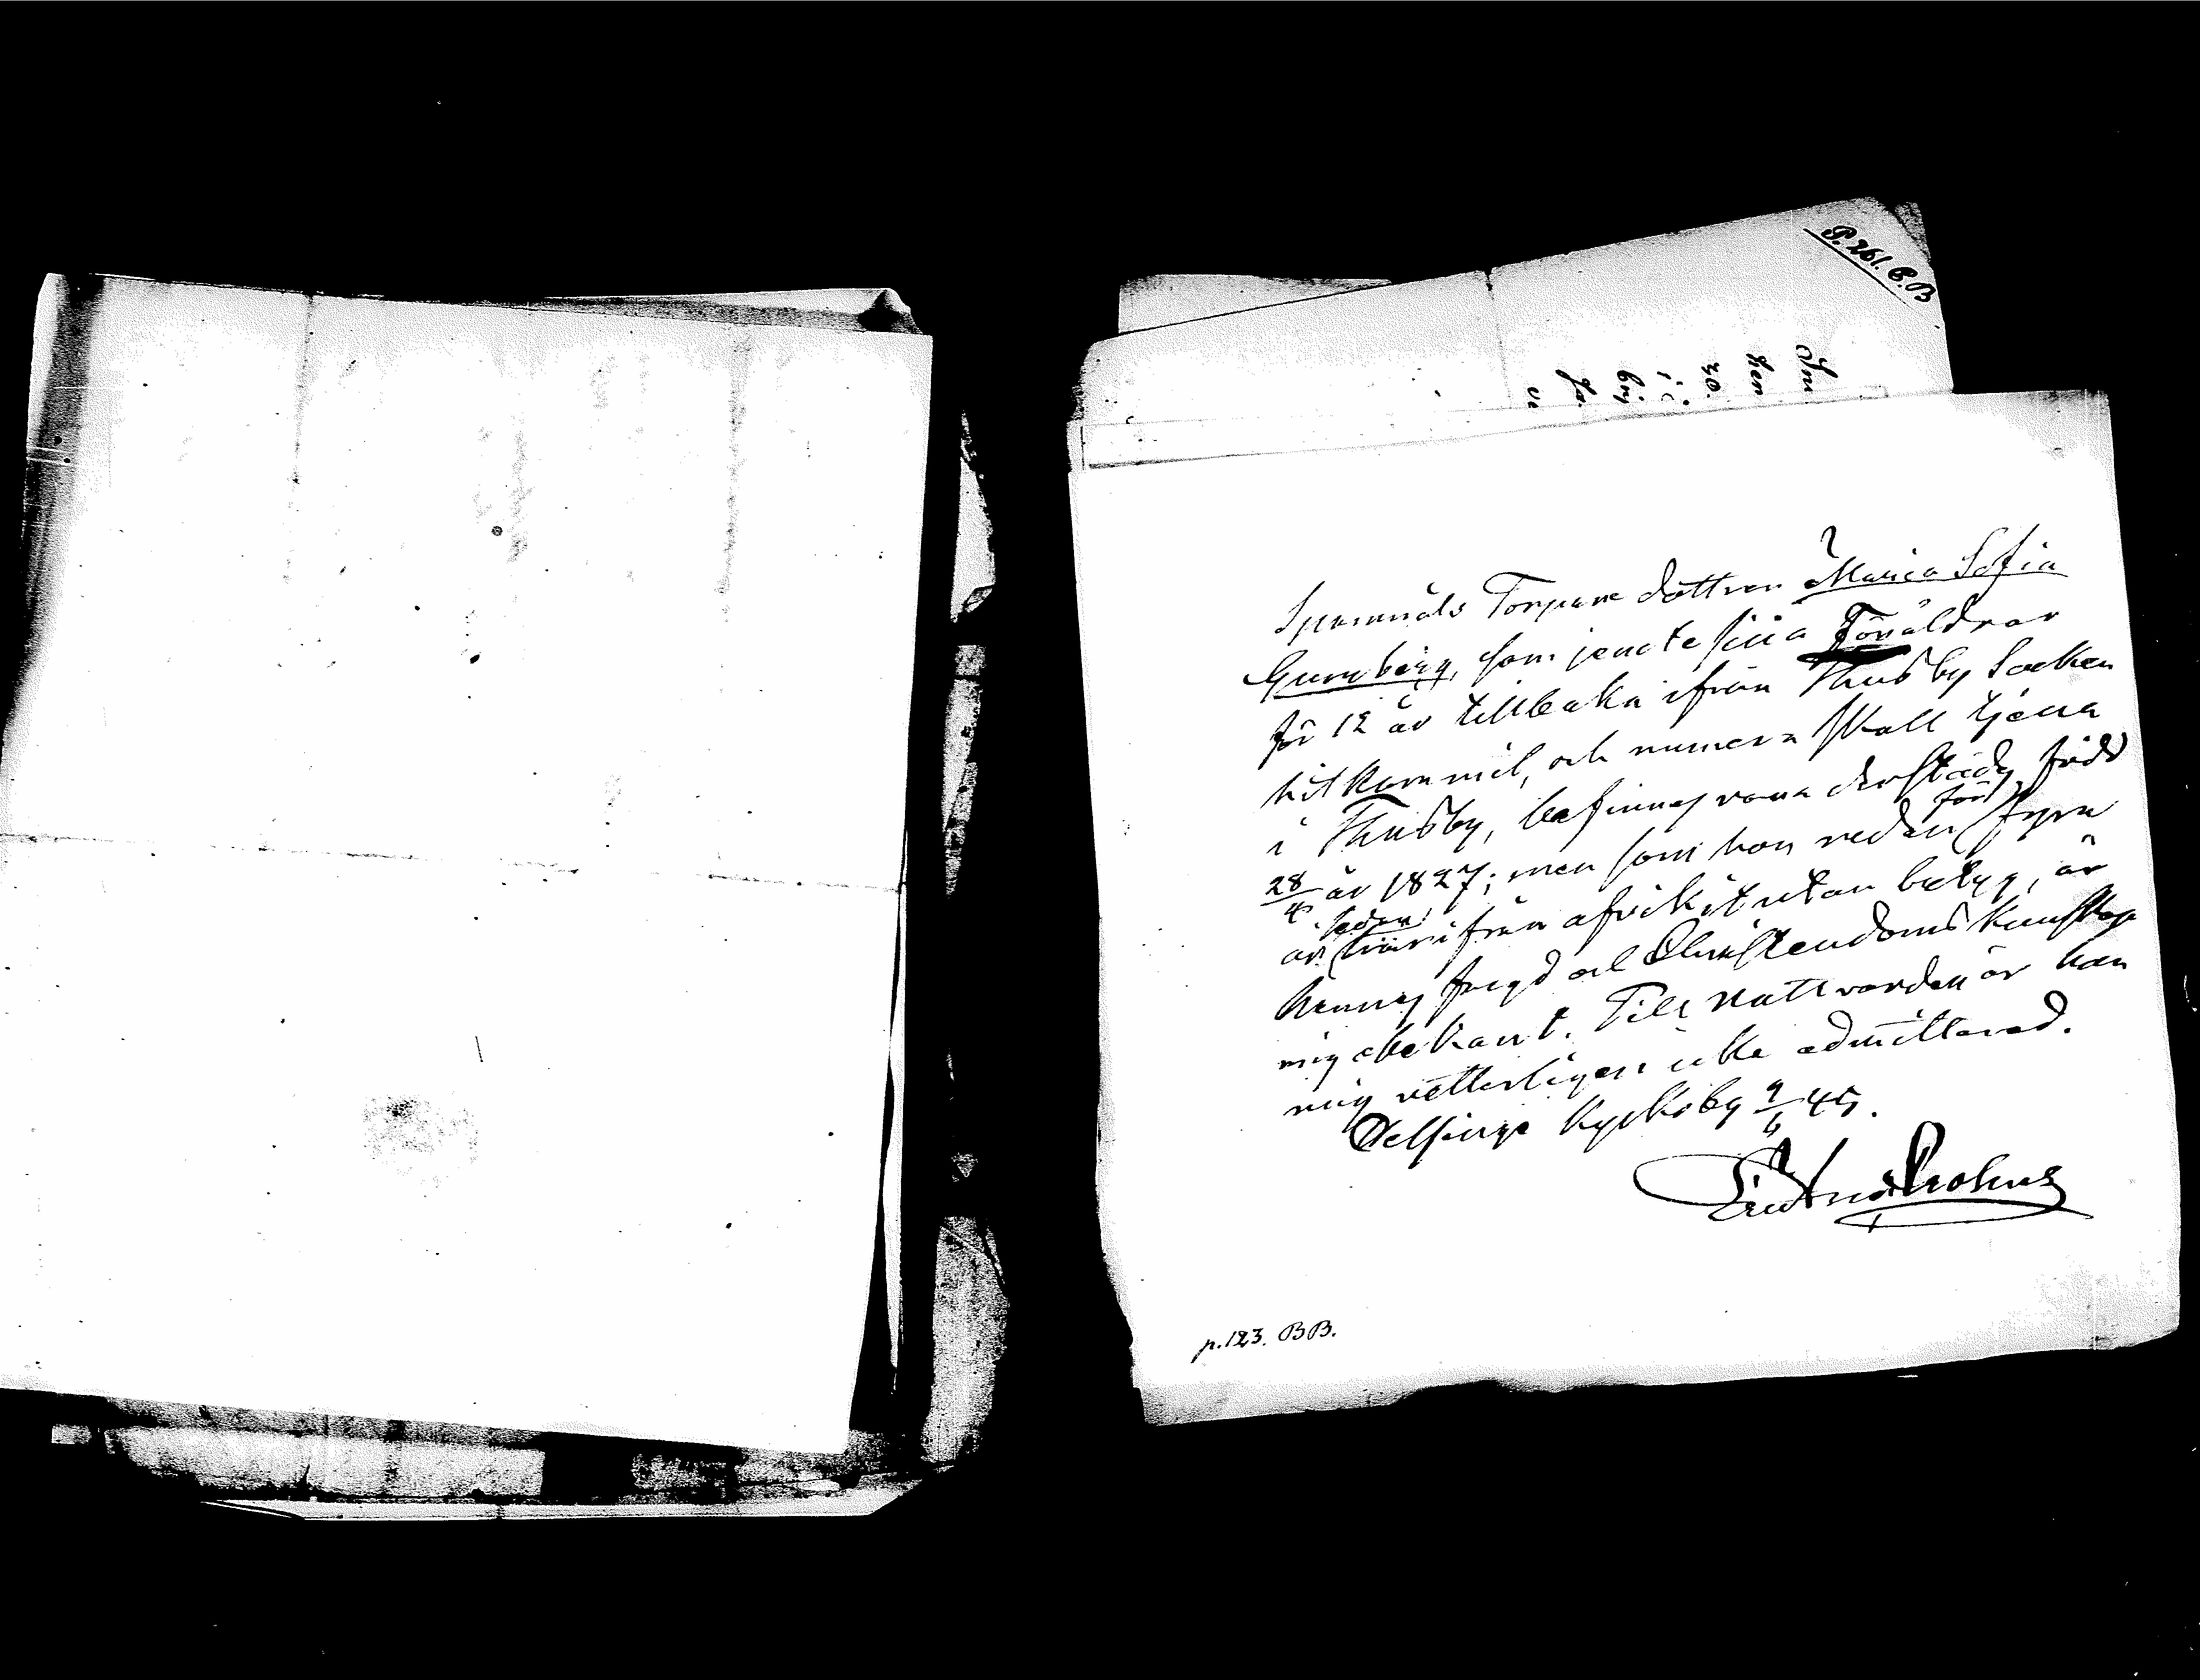 P. 261. C.B
Inh
hen
30.
i
bij
fö.
Torpare dottren Maria Sofia
Grundberg, som jemte sina Föräldrar
för 12 år tillbaka ifrån Thusby Socken
hitkommit, och numera skall tjena
i Thusby, befinnes vara derstädes född
28/4 år 1827; men som hon redan för fyra
år sedan härifrån afvikit utan betyg, är
hennes frejd och Christendoms kunskap
mig obekant. Till Nattvarden är hon
mig vetterligen icke admitterad.
Helsinge Kyrkoby 9/6 45.
Crohns
p. 123. BB.